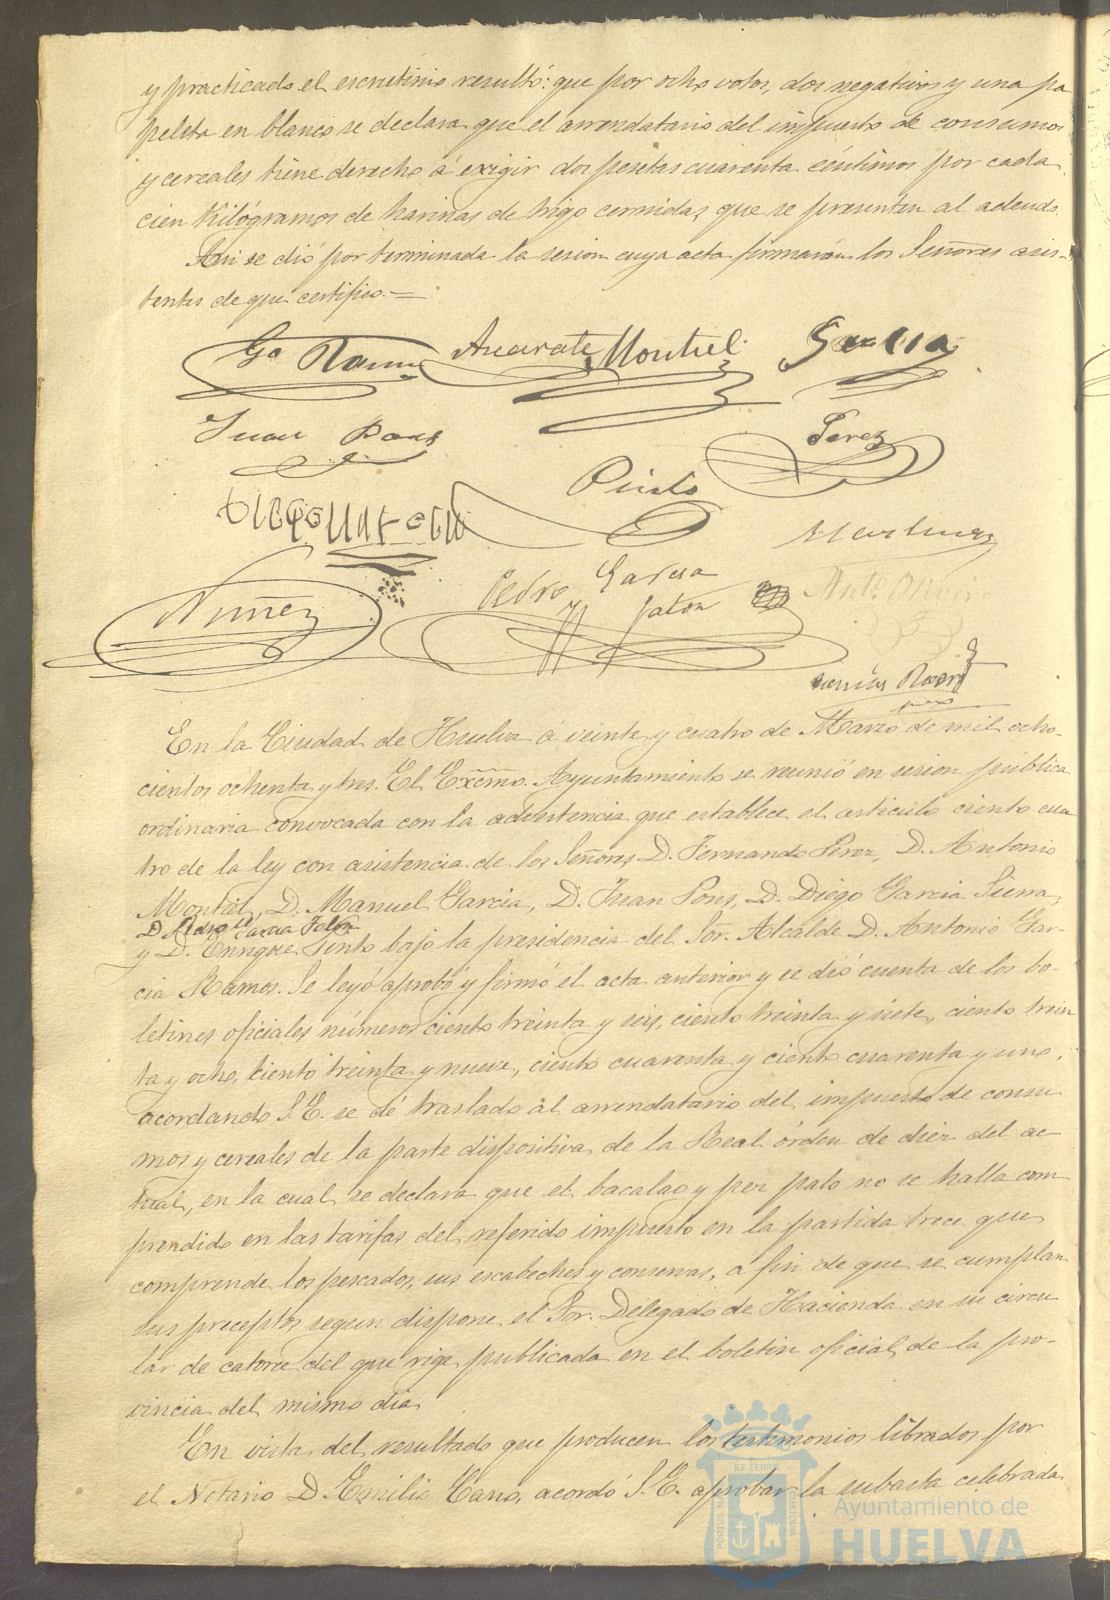 y practicado el escrutinio resultó: que por ocho votos, dos negativos y una pa
peleta en blanco se declara que el arrendatario del impuesto de consumos
y cereales tiene derecho á exigir dos pesetas cuarenta céntimos por cada
cien kilógramos de harinas de trigo cernidas que se presenten al adeudo.
Asi se dió por terminada la sesion cuya acta firmarán los Señores asis-
tentes de que certifico.=
Ga Ramos Azcarate Montiel Garcia
Juan Pons Perez
Pinto
Martinez
Nuñez Pedro Garcia Jalon Anto Oliveira
En la Ciudad de Huelva á veinte y cuatro de Marzo de mil ocho-
cientos ochenta y tres. El Excmo. Ayuntamiento se reunió en sesion pública
ordinaria convocada con la advertencia que establece el artículo ciento cua
tro de la ley con asistencia de los Señores D. Fernando Perez, D. Antonio
Montiel, D. Manuel Garcia, D. Juan Pons, D. Diego Garcia Sierra,
D. Pedro Garcia Jalon
y D. Enrique Pinto bajo la presidencia del Sor. Alcalde D. Antonio Gar-
cia Ramos. Se leyó aprobó y firmó el acta anterior y se dió cuenta de los bo-
letines oficiales números ciento treinta y seis, ciento treinta y siete, ciento trein
ta y ocho, ciento treinta y nueve, ciento cuarenta y ciento cuarenta y uno,
acordando S.E. se dé traslado al arrendatario del impuesto de consu
mos y cereales de la parte dispositiva de la Real órden de diez del ac
tual, en la cual se declara que el bacalao y pez palo no se halla com
prendido en las tarifas del referido impuesto en la partida trece que
comprende los pescados, sus escabeches y conservas, á fin de que se cumplan
sus preceptos segun dispone el Sor. Delegado de Hacienda en su circu
lar de catorce del que rige publicada en el boletin oficial de la pro-
vincia del mismo dia.
En vista del resultado que producen los testimonios librados por
el Notario D. Emilio Cano, acordó S.E. aprobar la subasta celebrada
Ayuntamiento de
HUELVA